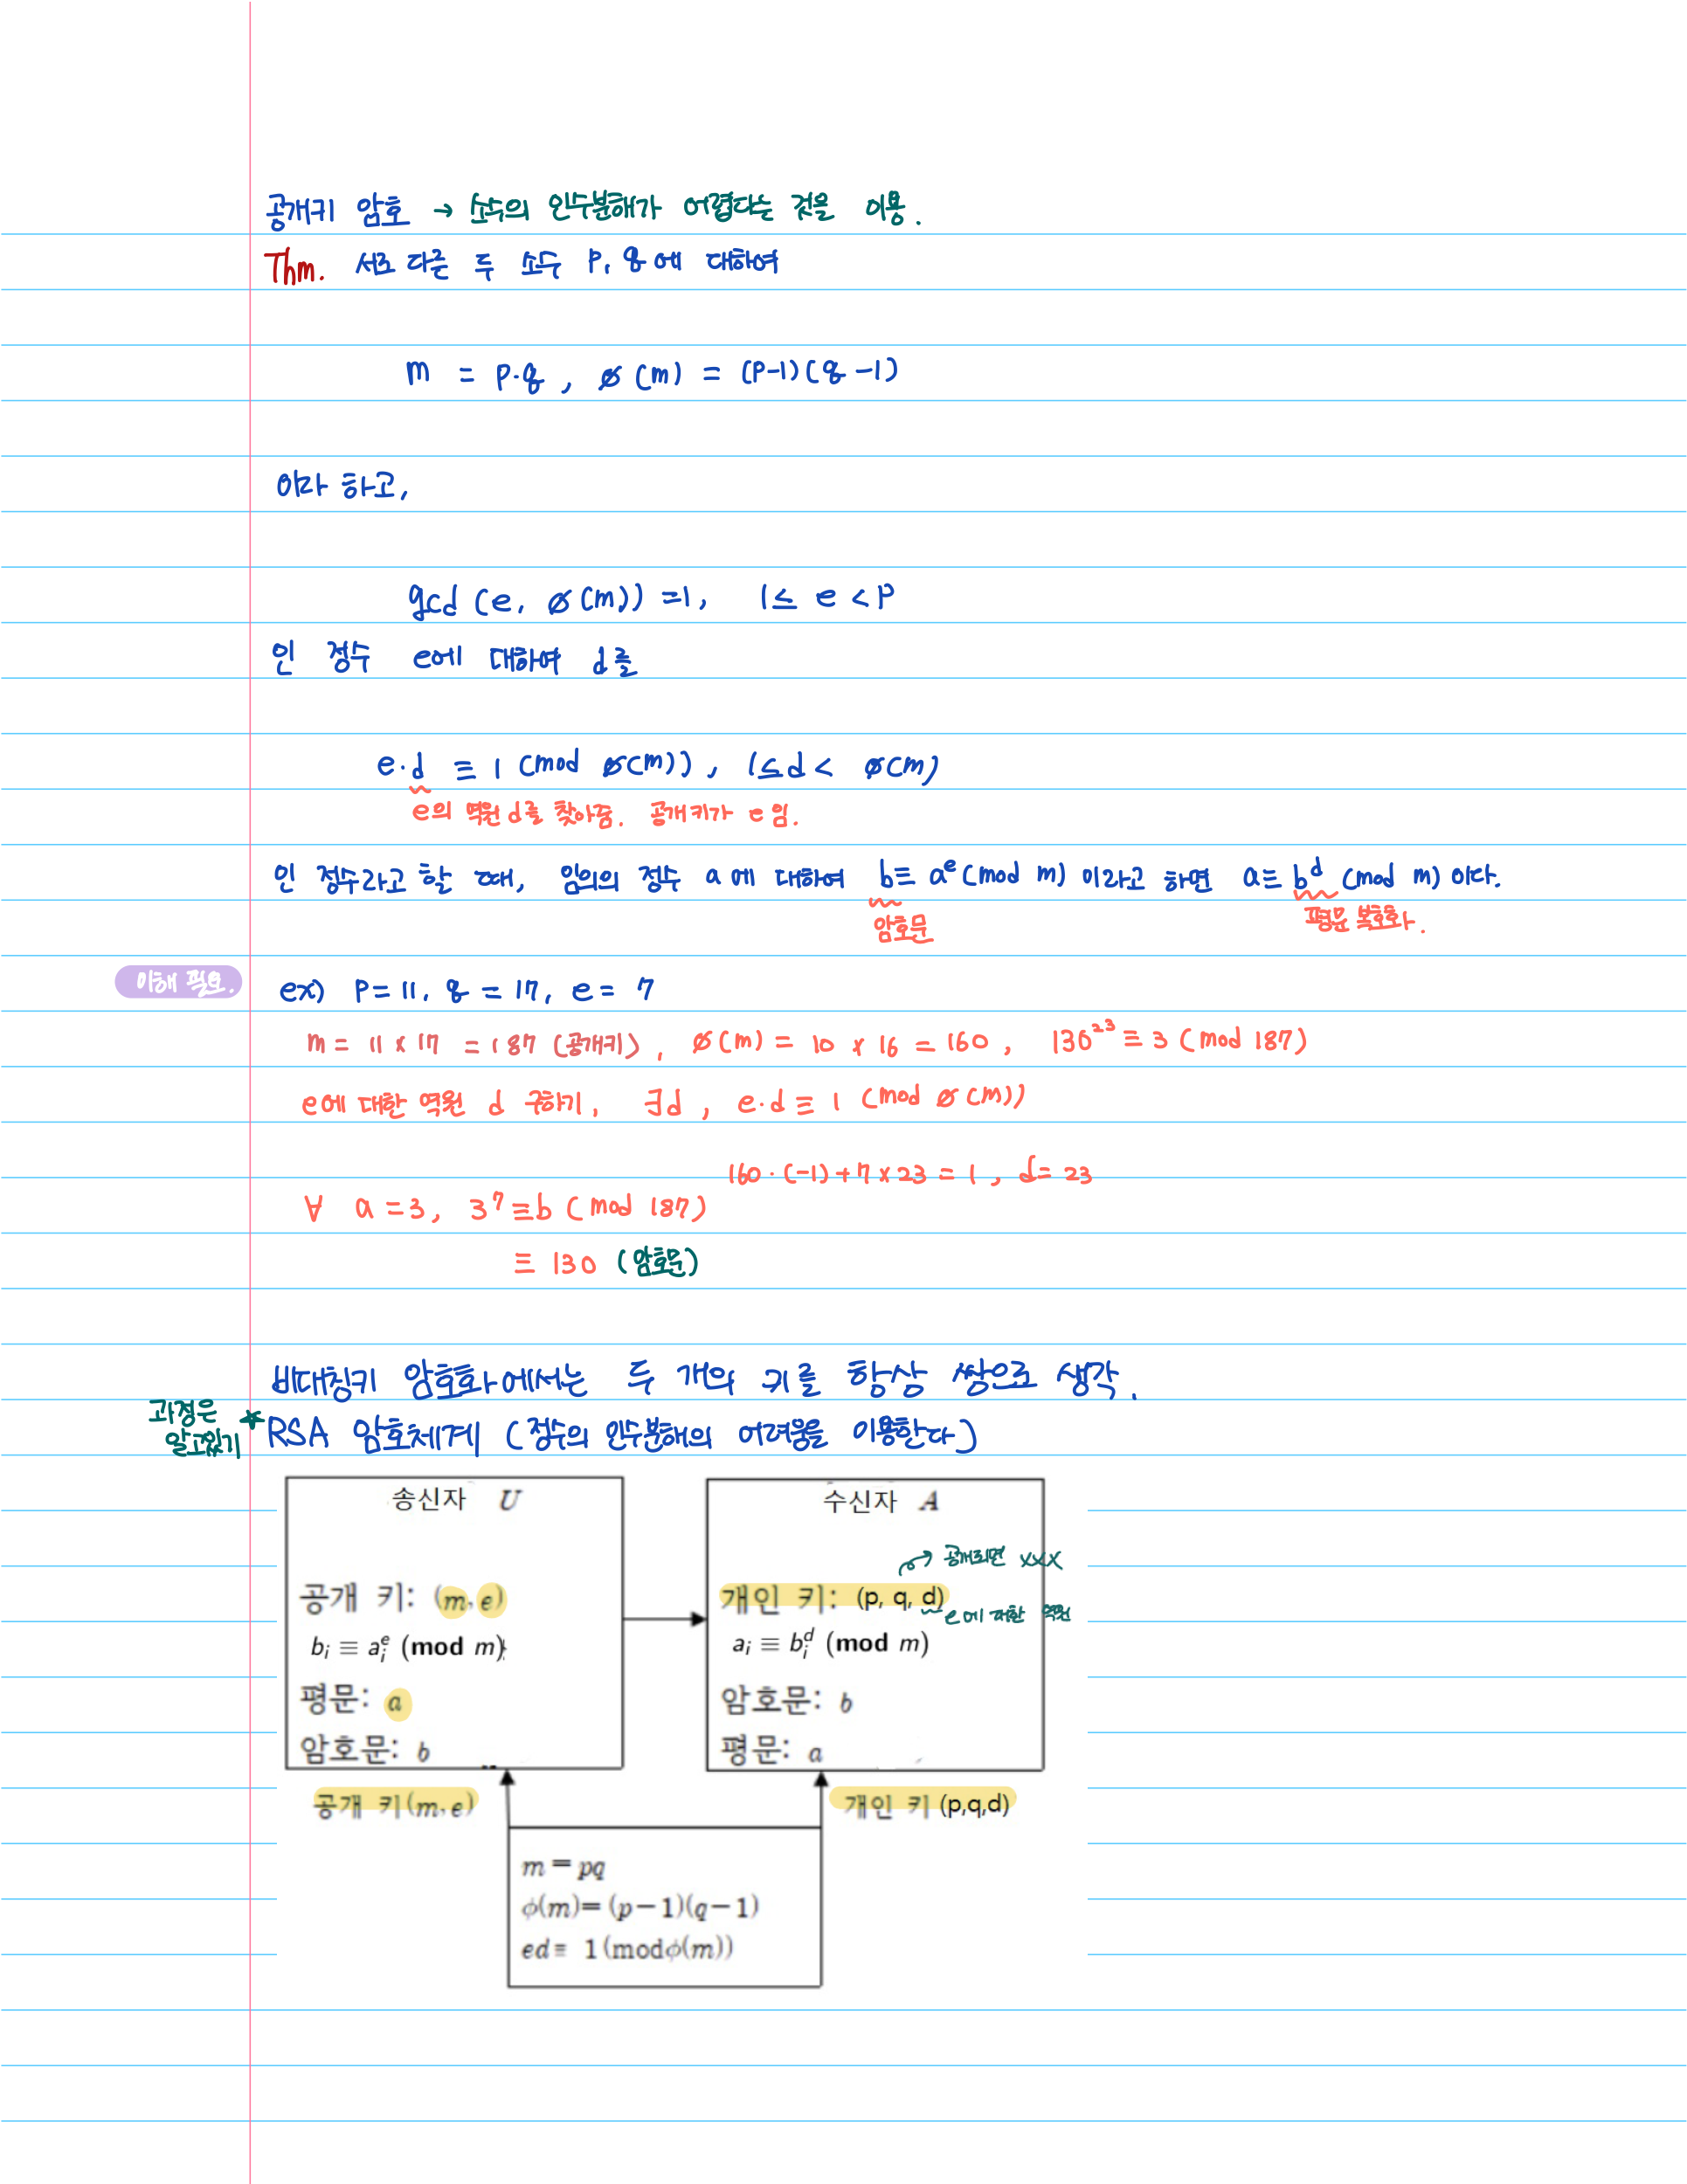 공개키 암호 → 소수의 인수분해가 어렵다는 것을 이용.
Thm. 서로 다른 두 소수 p, q에 대하여
m = p·q, ø(m) = (p-1)(q-1)
이라 하고,
gcd(e, ø(m)) = 1, 1 ≤ e < p
인 정수 e에 대하여 d를
e·d ≡ 1 (mod ø(m)), 1 ≤ d < ø(m)
e의 역원 d를 찾아줌. 공개키가 e임.
인 정수라고 할 때, 임의의 정수 a에 대하여 b ≡ a^e (mod m) 이라고 하면 a ≡ b^d (mod m) 이다.
암호문 평문 복호화.
이해 필요.
ex) p = 11, q = 17, e = 7
m = 11 × 17 = 187 (공개키), ø(m) = 10 × 16 = 160, 130^23 ≡ 3 (mod 187)
e에 대한 역원 d 구하기, ∃d, e·d ≡ 1 (mod ø(m))
160·(-1) + 7 × 23 = 1, d = 23
∀ a = 3, 3^7 ≡ b (mod 187)
≡ 130 (암호문)
비대칭키 암호화에서는 두 개의 키를 항상 쌍으로 생각.
과정은 알고있기
☆ RSA 암호체계 (정수의 인수분해의 어려움을 이용한다)
송신자 U
공개 키: (m, e)
b_i ≡ a_i^e (mod m)
평문: a
암호문: b
공개 키(m, e)
수신자 A
공개되면 xxx
개인 키: (p, q, d)
e에 대한 역원
a_i ≡ b_i^d (mod m)
암호문: b
평문: a
개인 키 (p,q,d)
m = pq
ϕ(m) = (p−1)(q−1)
ed ≡ 1(modϕ(m))